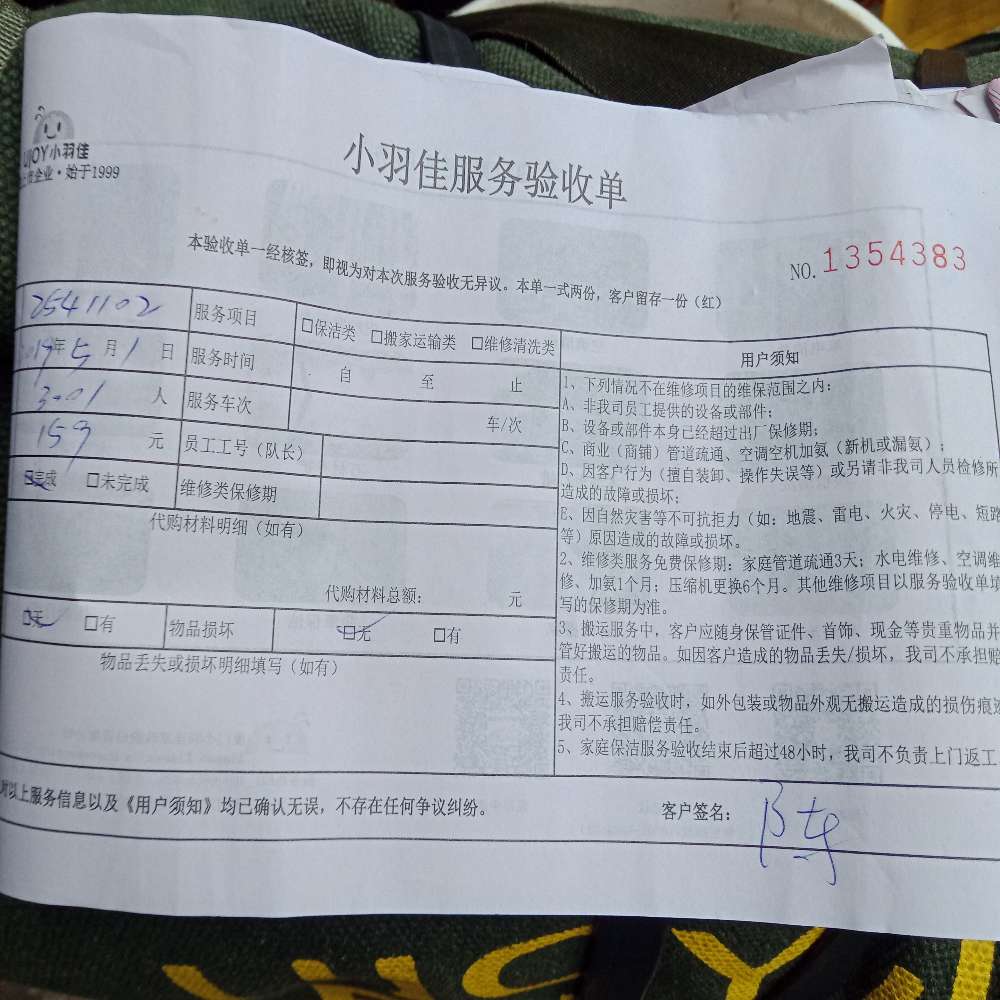 UJOY小羽佳
企业·始于1999
小羽佳服务验收单
本验收单一经核签，即视为对本次服务验收无异议。本单一式两份，客户留存一份（红）
NO.1354383
2541102 服务项目 □保洁类 □搬家运输类 □维修清洗类
2019年5月1日 服务时间 自 至 止
人 服务车次 车/次
159元 员工工号（队长）
□完成 □未完成 维修类保修期
代购材料明细（如有）
代购材料总额： 元
□无 □有 物品损坏 □无 □有
物品丢失或损坏明细填写（如有）
用户须知
1、下列情况不在维修项目的维保范围之内：
A、非我司员工提供的设备或部件；
B、设备或部件本身已经超过出厂保修期；
C、商业（商铺）管道疏通、空调空机加氨（新机或漏氨）；
D、因客户行为（擅自装卸、操作失误等）或另请非我司人员检修所
造成的故障或损坏；
E、因自然灾害等不可抗拒力（如：地震、雷电、火灾、停电、短路
等）原因造成的故障或损坏。
2、维修类服务免费保修期：家庭管道疏通3天；水电维修、空调维
修、加氨1个月；压缩机更换6个月。其他维修项目以服务验收单填
写的保修期为准。
3、搬运服务中，客户应随身保管证件、首饰、现金等贵重物品并
管好搬运的物品。如因客户造成的物品丢失/损坏，我司不承担赔
责任。
4、搬运服务验收时，如外包装或物品外观无搬运造成的损伤痕迹
我司不承担赔偿责任。
5、家庭保洁服务验收结束后超过48小时，我司不负责上门返工
对以上服务信息以及《用户须知》均已确认无误，不存在任何争议纠纷。
客户签名：陈